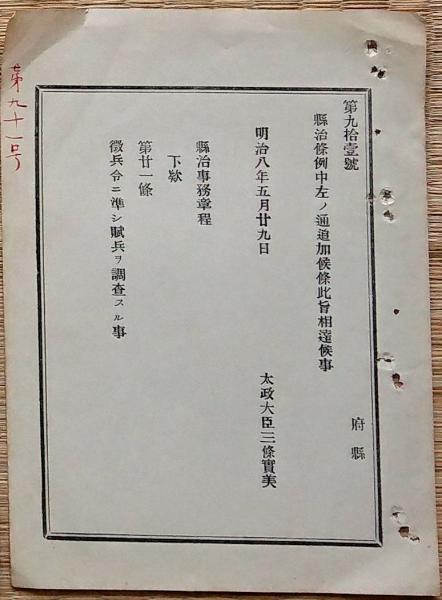 第九十一号
第九拾壹號
府縣
縣治條例中左ノ通追加候條此旨相達候事
明治八年五月廿九日
太政大臣三條實美
縣治事務章程
下欵
第廿一條
徵兵令ニ準シ賦兵ヲ調査スル事